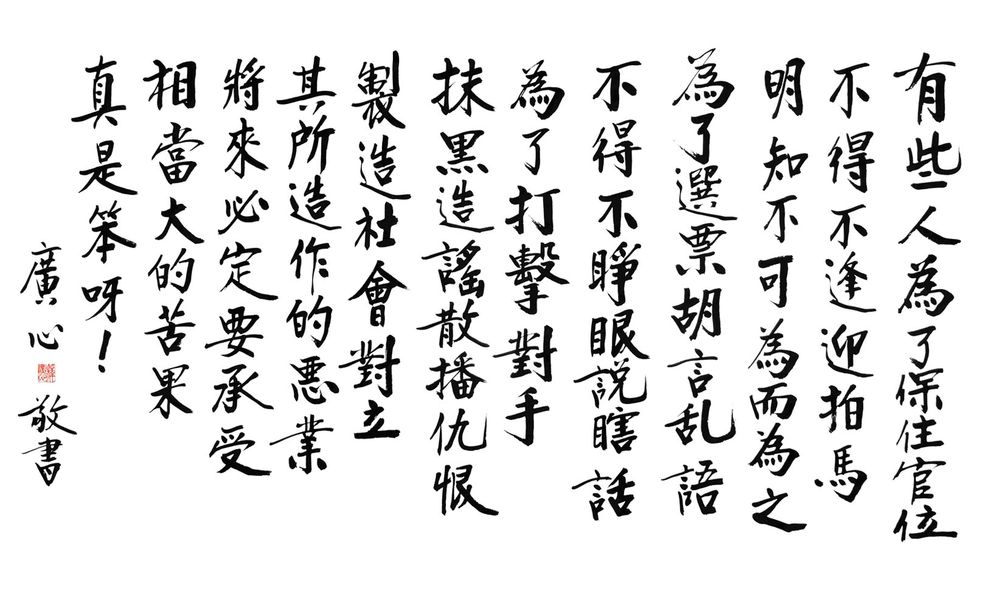 有些人為了保住官位
不得不逢迎拍馬
明知不可為而為之
為了選票胡言乱語
不得不睁眼説瞎話
為了打擊對手
抹黒造謡散播仇恨
製造社會對立
其所造作的悪業
將來必定要承受
相當大的苦果
真是笨呀！
廣心 敬書